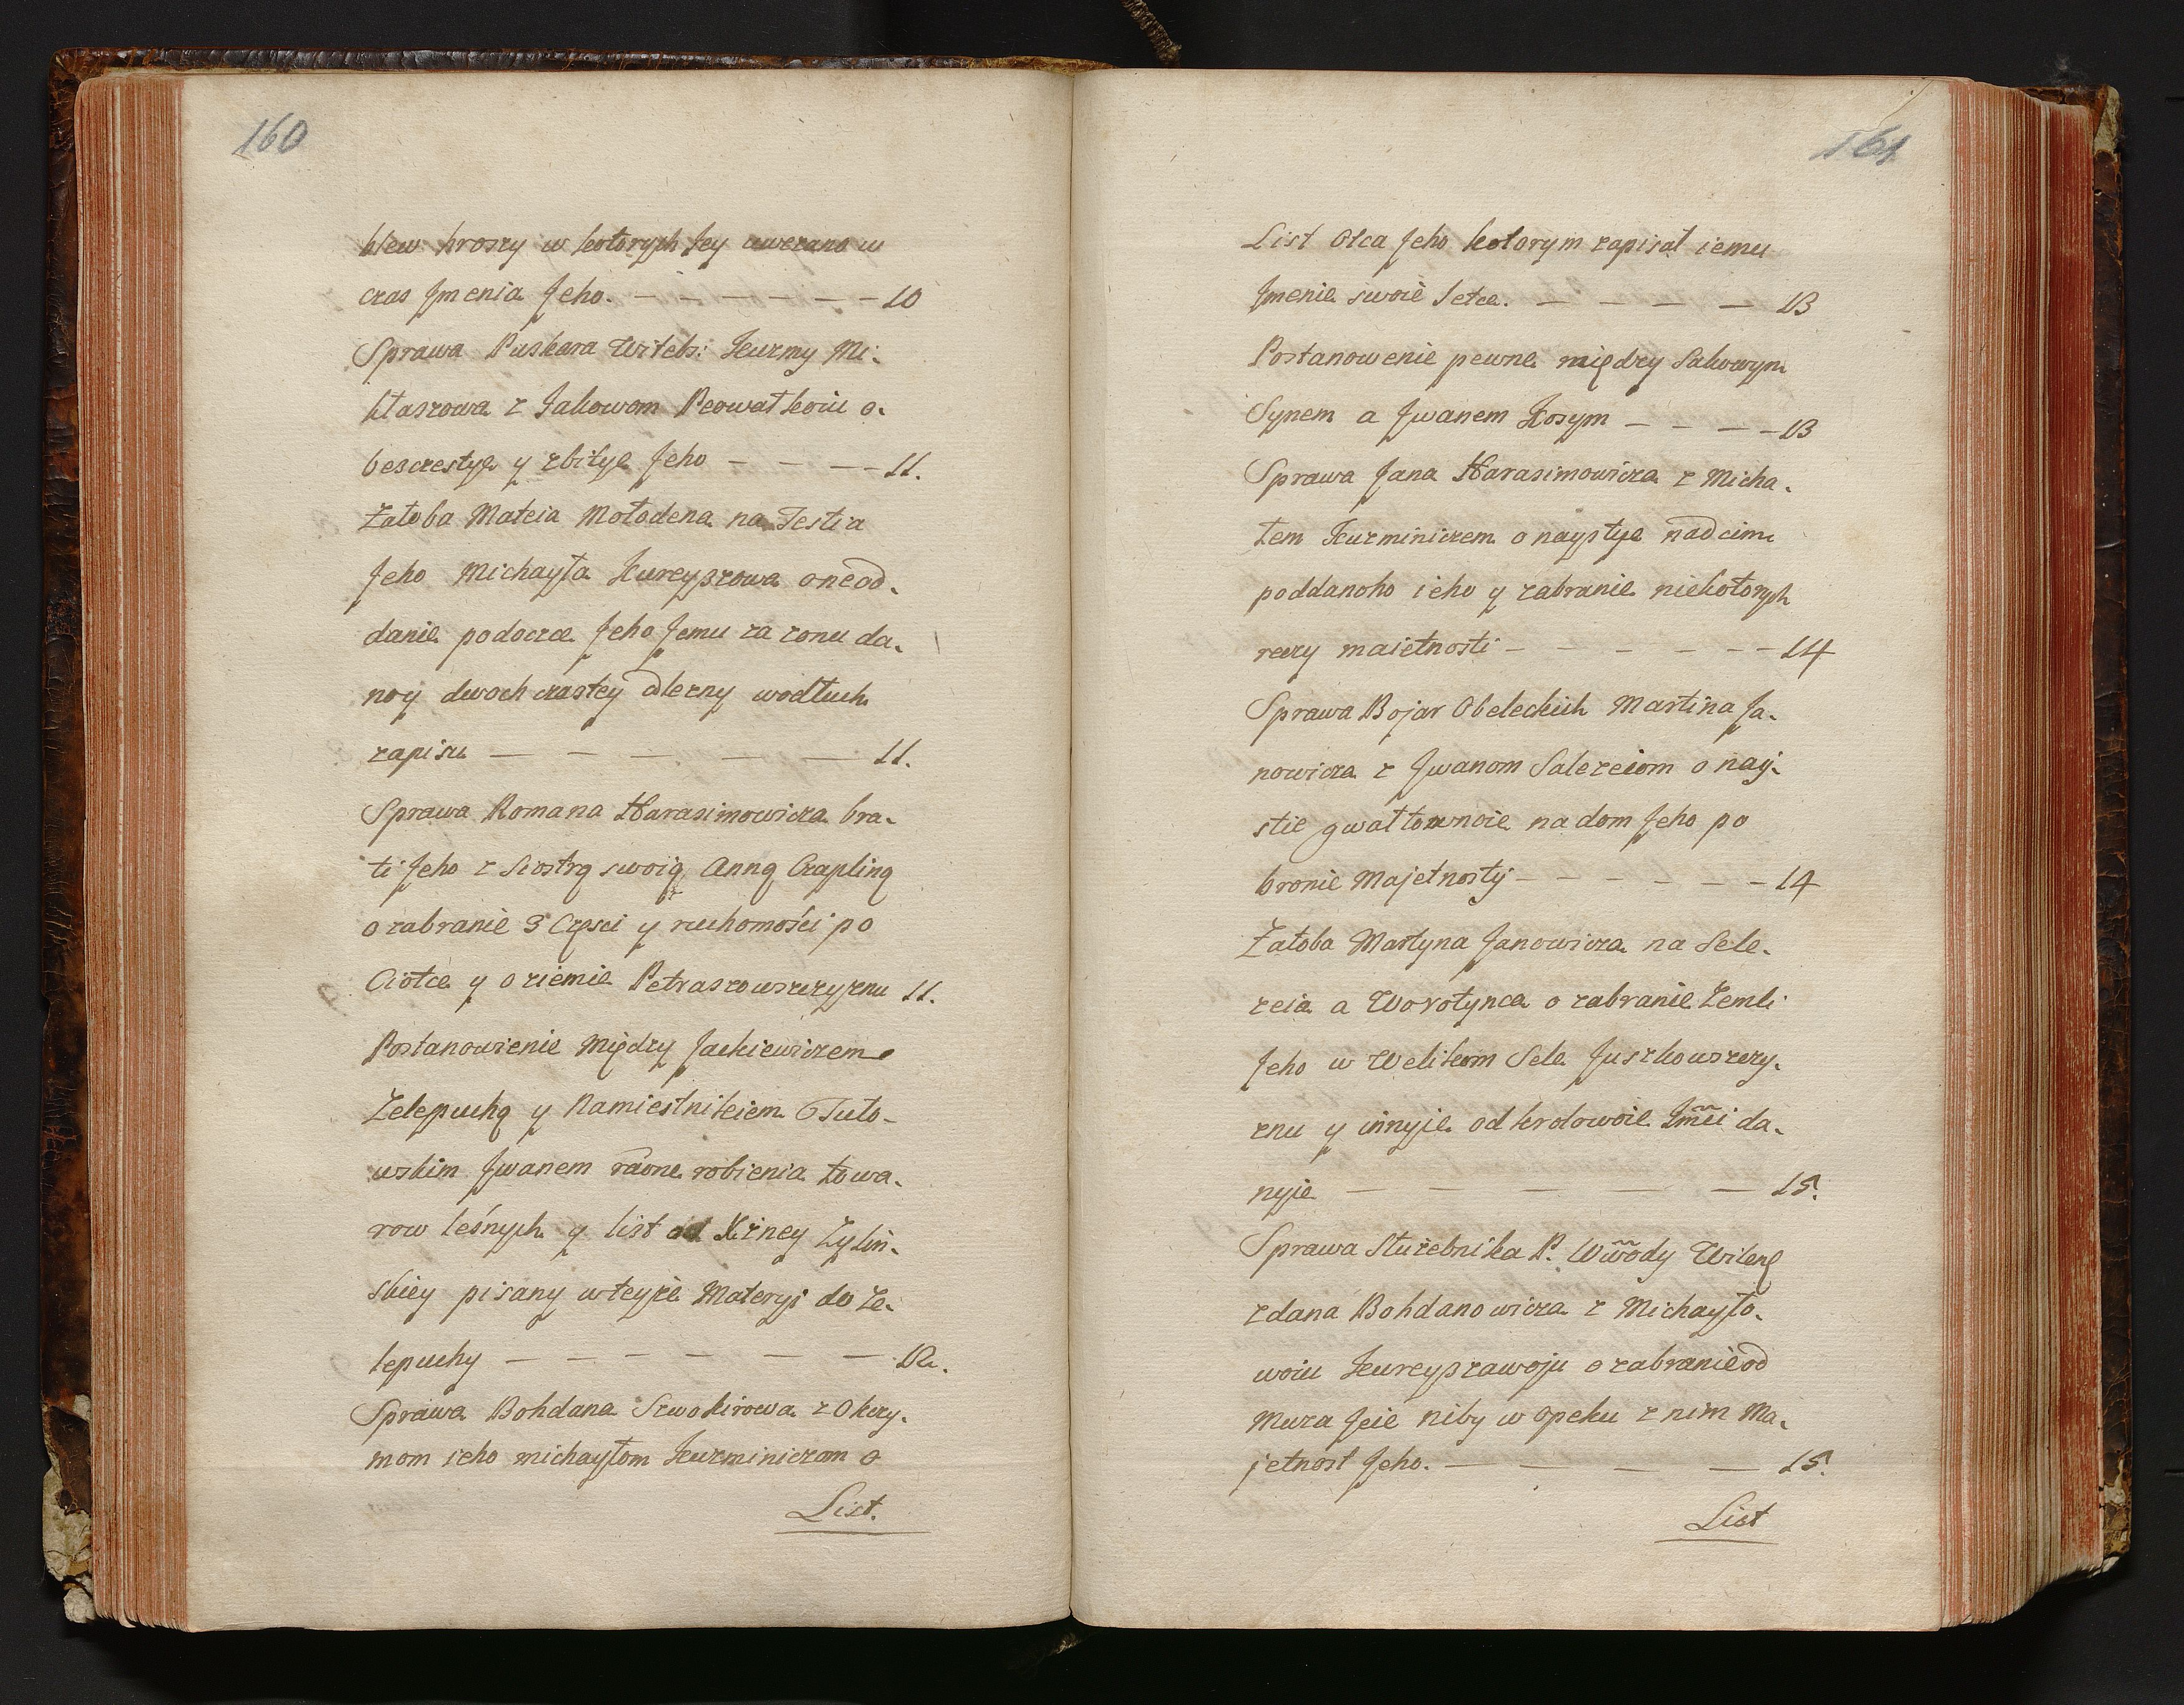 160
blew hroszy w kotorych Jey uwezano w
czas Jmenia Jeho. — — — — — — 10
Sprawa Puskara Witeb: Kuzmy Mi-
kłaszowa z Jakowom Peowatkoiu o-
besczestye y zbitye Jeho — — — — 11.
Załoba Mateia Mołodena na Testia
Jeho Michayła Kureyszowa o neod-
danie podocze Jeho Jemu za zonu da-
noy dwoch czastey dlezny wodłuch
zapisu — — — — — 11.
Sprawa Romana Harasimowicza bra-
ti Jeho z Siostrą swoią Anną Czapliną
o zabranie 3 Częsci y ruchomości po
Ciotce y o ziemie Petraszowszczyznu 11.
Postanowienie Między Jackiewiczem
Zelepuchą y Namiestnikiem Tuto-
wskim Jwanem rąone robienia towa-
row leśnych y list od Xżney Zylin-
skiey pisany w teyże Materyi do Ze-
lepuchy — — — — — — 12.
Sprawa Bohdana Szwokirowa z Okzy-
mom ieho michayłom Kuzminiczom o
List.
161
List Otca Jeho kotorym zapisał iemu
Jmenie swoie Setce. — — — — 13
Postanowenie pewne między Sakowym
Synem a Jwanem Kosym — — — — 13
Sprawa Jana Harasimowicza z Micha-
łem Kuzminiczem o naystye nadcim
poddanoho ieho y zabranie niekotorych
reczy maietnosti — — — — — — 14
Sprawa Bojar Obeleckich Martina Ja-
nowicza z Jwanom Salezeiom o nay-
stie gwałtownoie na dom Jeho po
bronie Majetnosty — — — — — — 14
Załoba Martyna Janowicza na Sele-
zeia a Worotynca o zabranie Zemli
Jeho w Welikom Sele Juszkowszczy-
znu y innyie od krolowoie Jmĉi da-
nyie — — — — — 15.
Sprawa Służebnika P. Wwody Wilenę
zdana Bohdanowicza z Michayło-
woiu Kureyszawoju o zabranie od
Muza Jeie niby w opeku z nim Ma-
jetnost Jeho. — — — — 15.
List